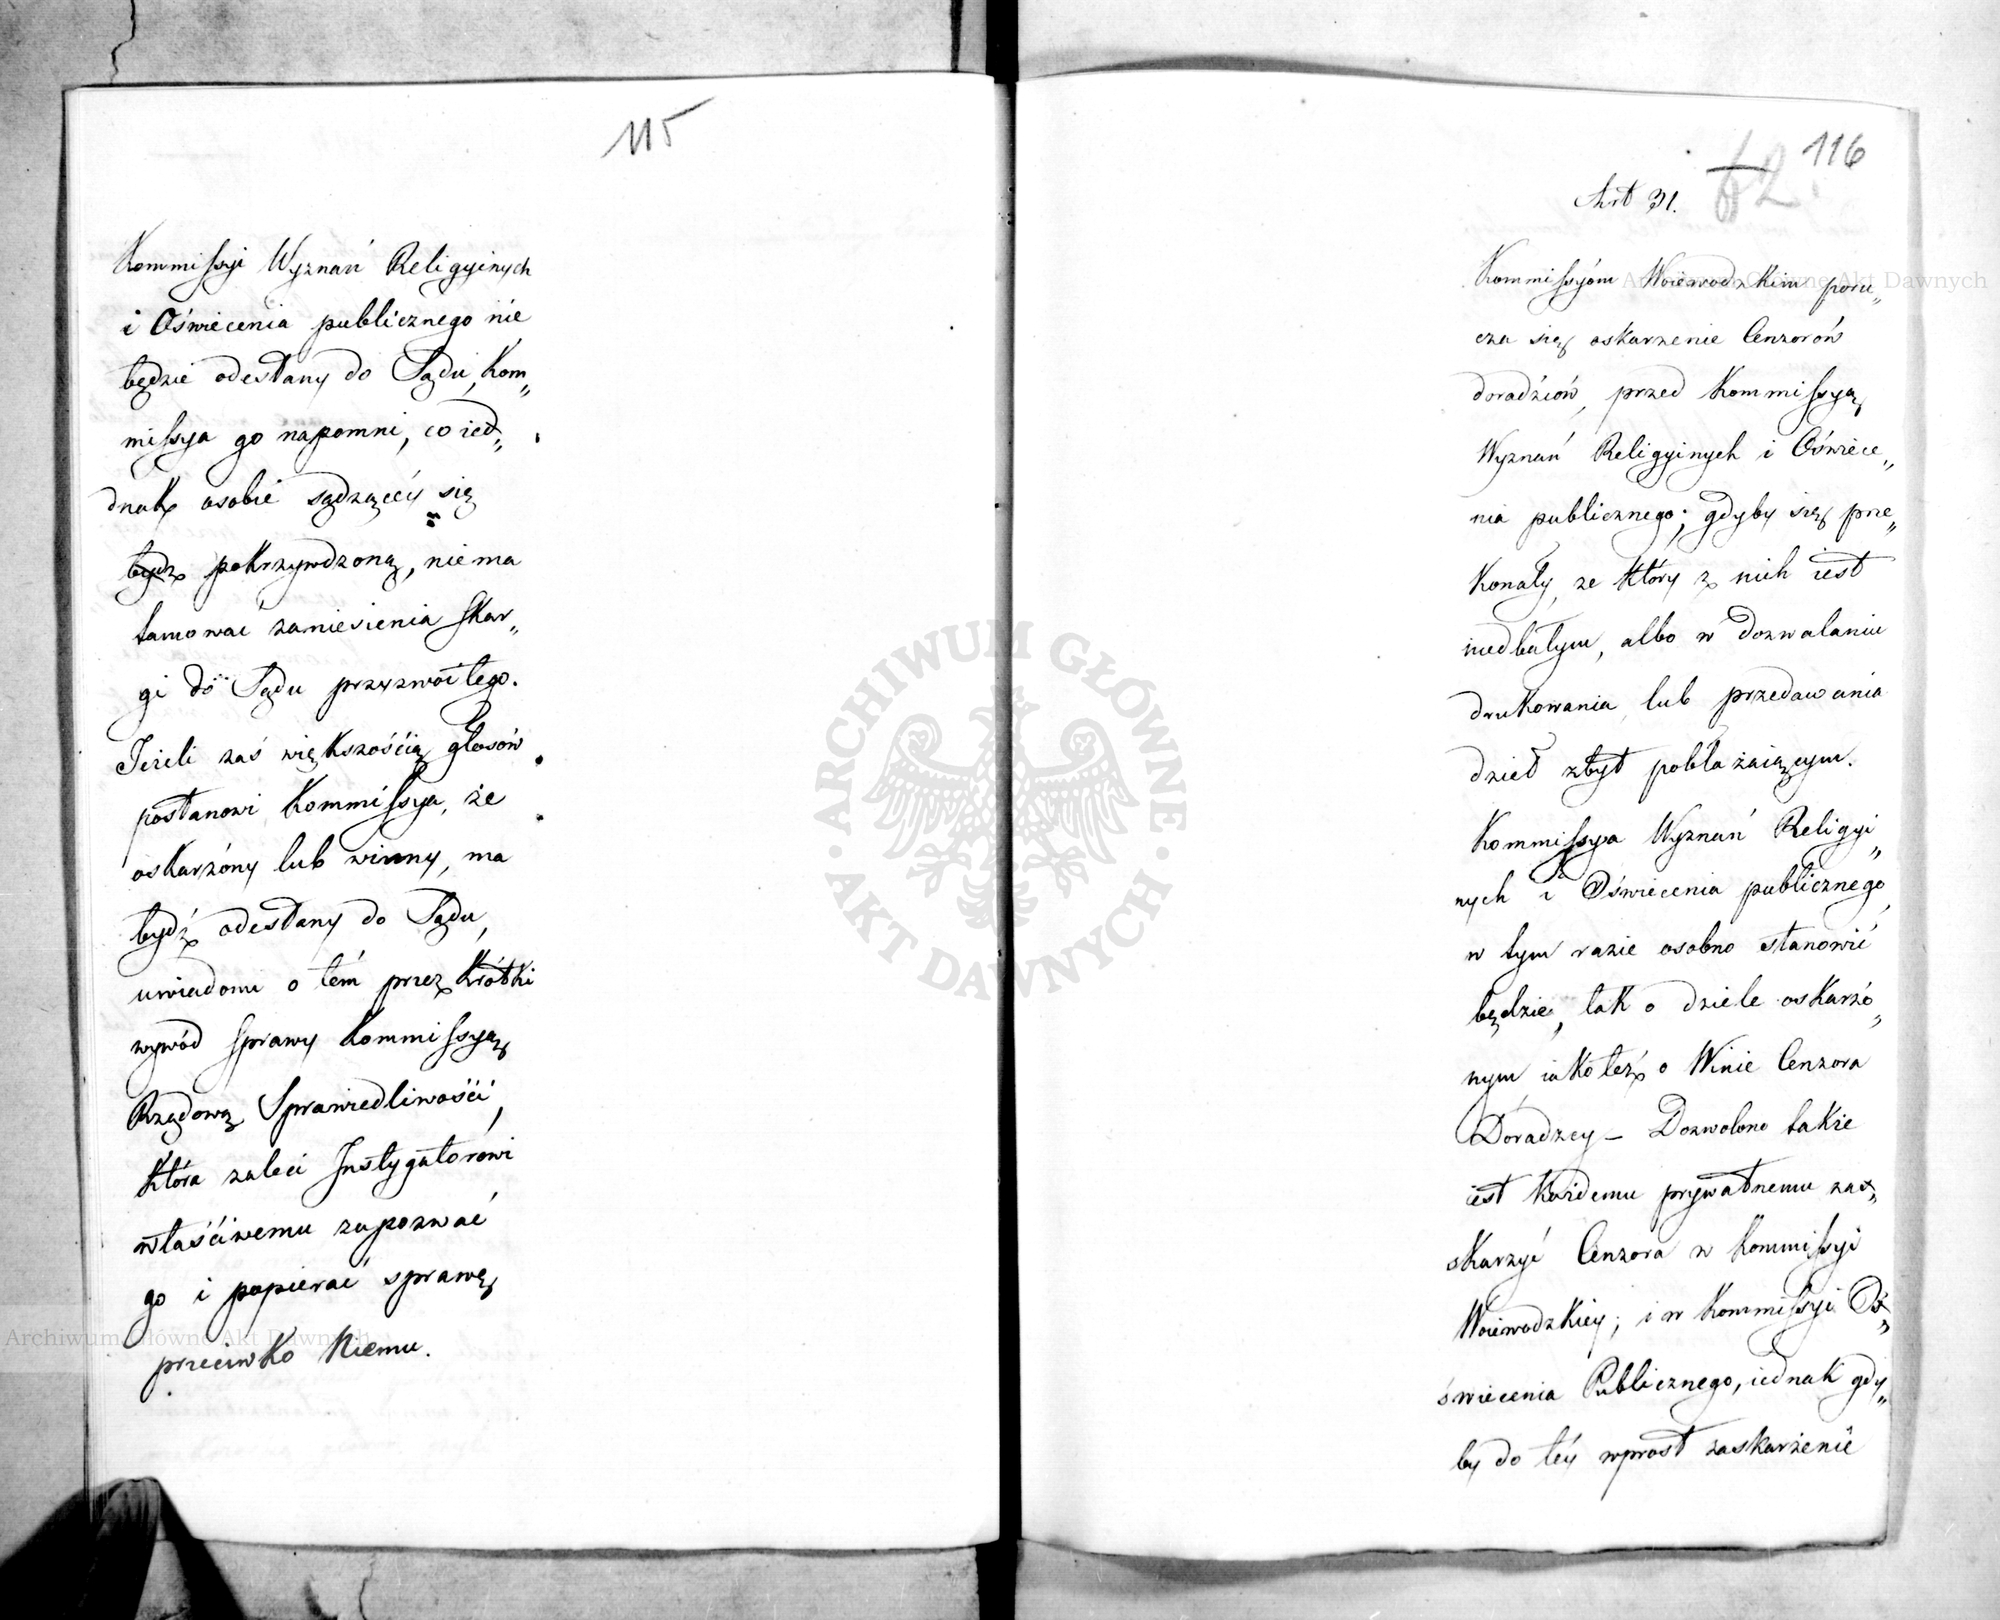 115
Kommissyi Wyznań Religyinych
i Oświecenia publicznego nie
będzie odesłany do Sądu, Kom„
missya go napomni, co ied„
dnak osobie sądzącéy się
bydz pokrzywdzoną, nie ma
tamować zaniesienia skar„
gi do Sądu przyzwoitego.
Jeżeli zaś większością głosów
postanowi Kommissya, że
oskarżony lub winny, ma
bydź odesłany do Sądu,
uwiadomi o tém przez krótki
wywód sprawy Kommissyą
Rządową Sprawiedliwości,
która zaleci Instygatorowi
właściwemu zapozwać
go i popierać sprawę
przeciwko Niemu.
116
62
Art 31.
Kommissyóm Woiewodzkim poru„
cza się oskarzenie Cenzorów
doradźców, przed Kommissyą
Wyznań Religyinych i Oświece„
nia publicznego; gdyby się prze„
konały, ze który z nich iest
niedbałym, albo w dozwalaniu
drukowania lub przedawania
dzieł zbyt pobłażaiącym.
Kommissya Wyznań Religyi„
nych i Oświecenia publicznego,
w tym razie osobno stanowić
będzie, tak o dziele oskarżo„
nym iako też o Winie Cenzora
Doradzcy – Dozwolono takie
iest każdemu prywatnemu zas„
skarzyć Cenzora w Kommissyi
Woiewodzkiey; i w Kommissyi Oś„
świecenia Publicznego, iednak gdy„
by do téy wprost zaskarżenie
ARCHIWUM GŁÓWNE · AKT DAWNYCH ·
Archiwum Główne Akt Dawnych
Archiwum Główne Akt Dawnych